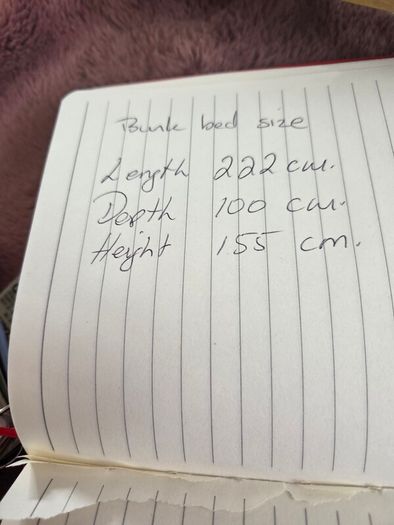 Bunk bed size
Length 222 cm.
Depth 100 cm.
Height 155 cm.